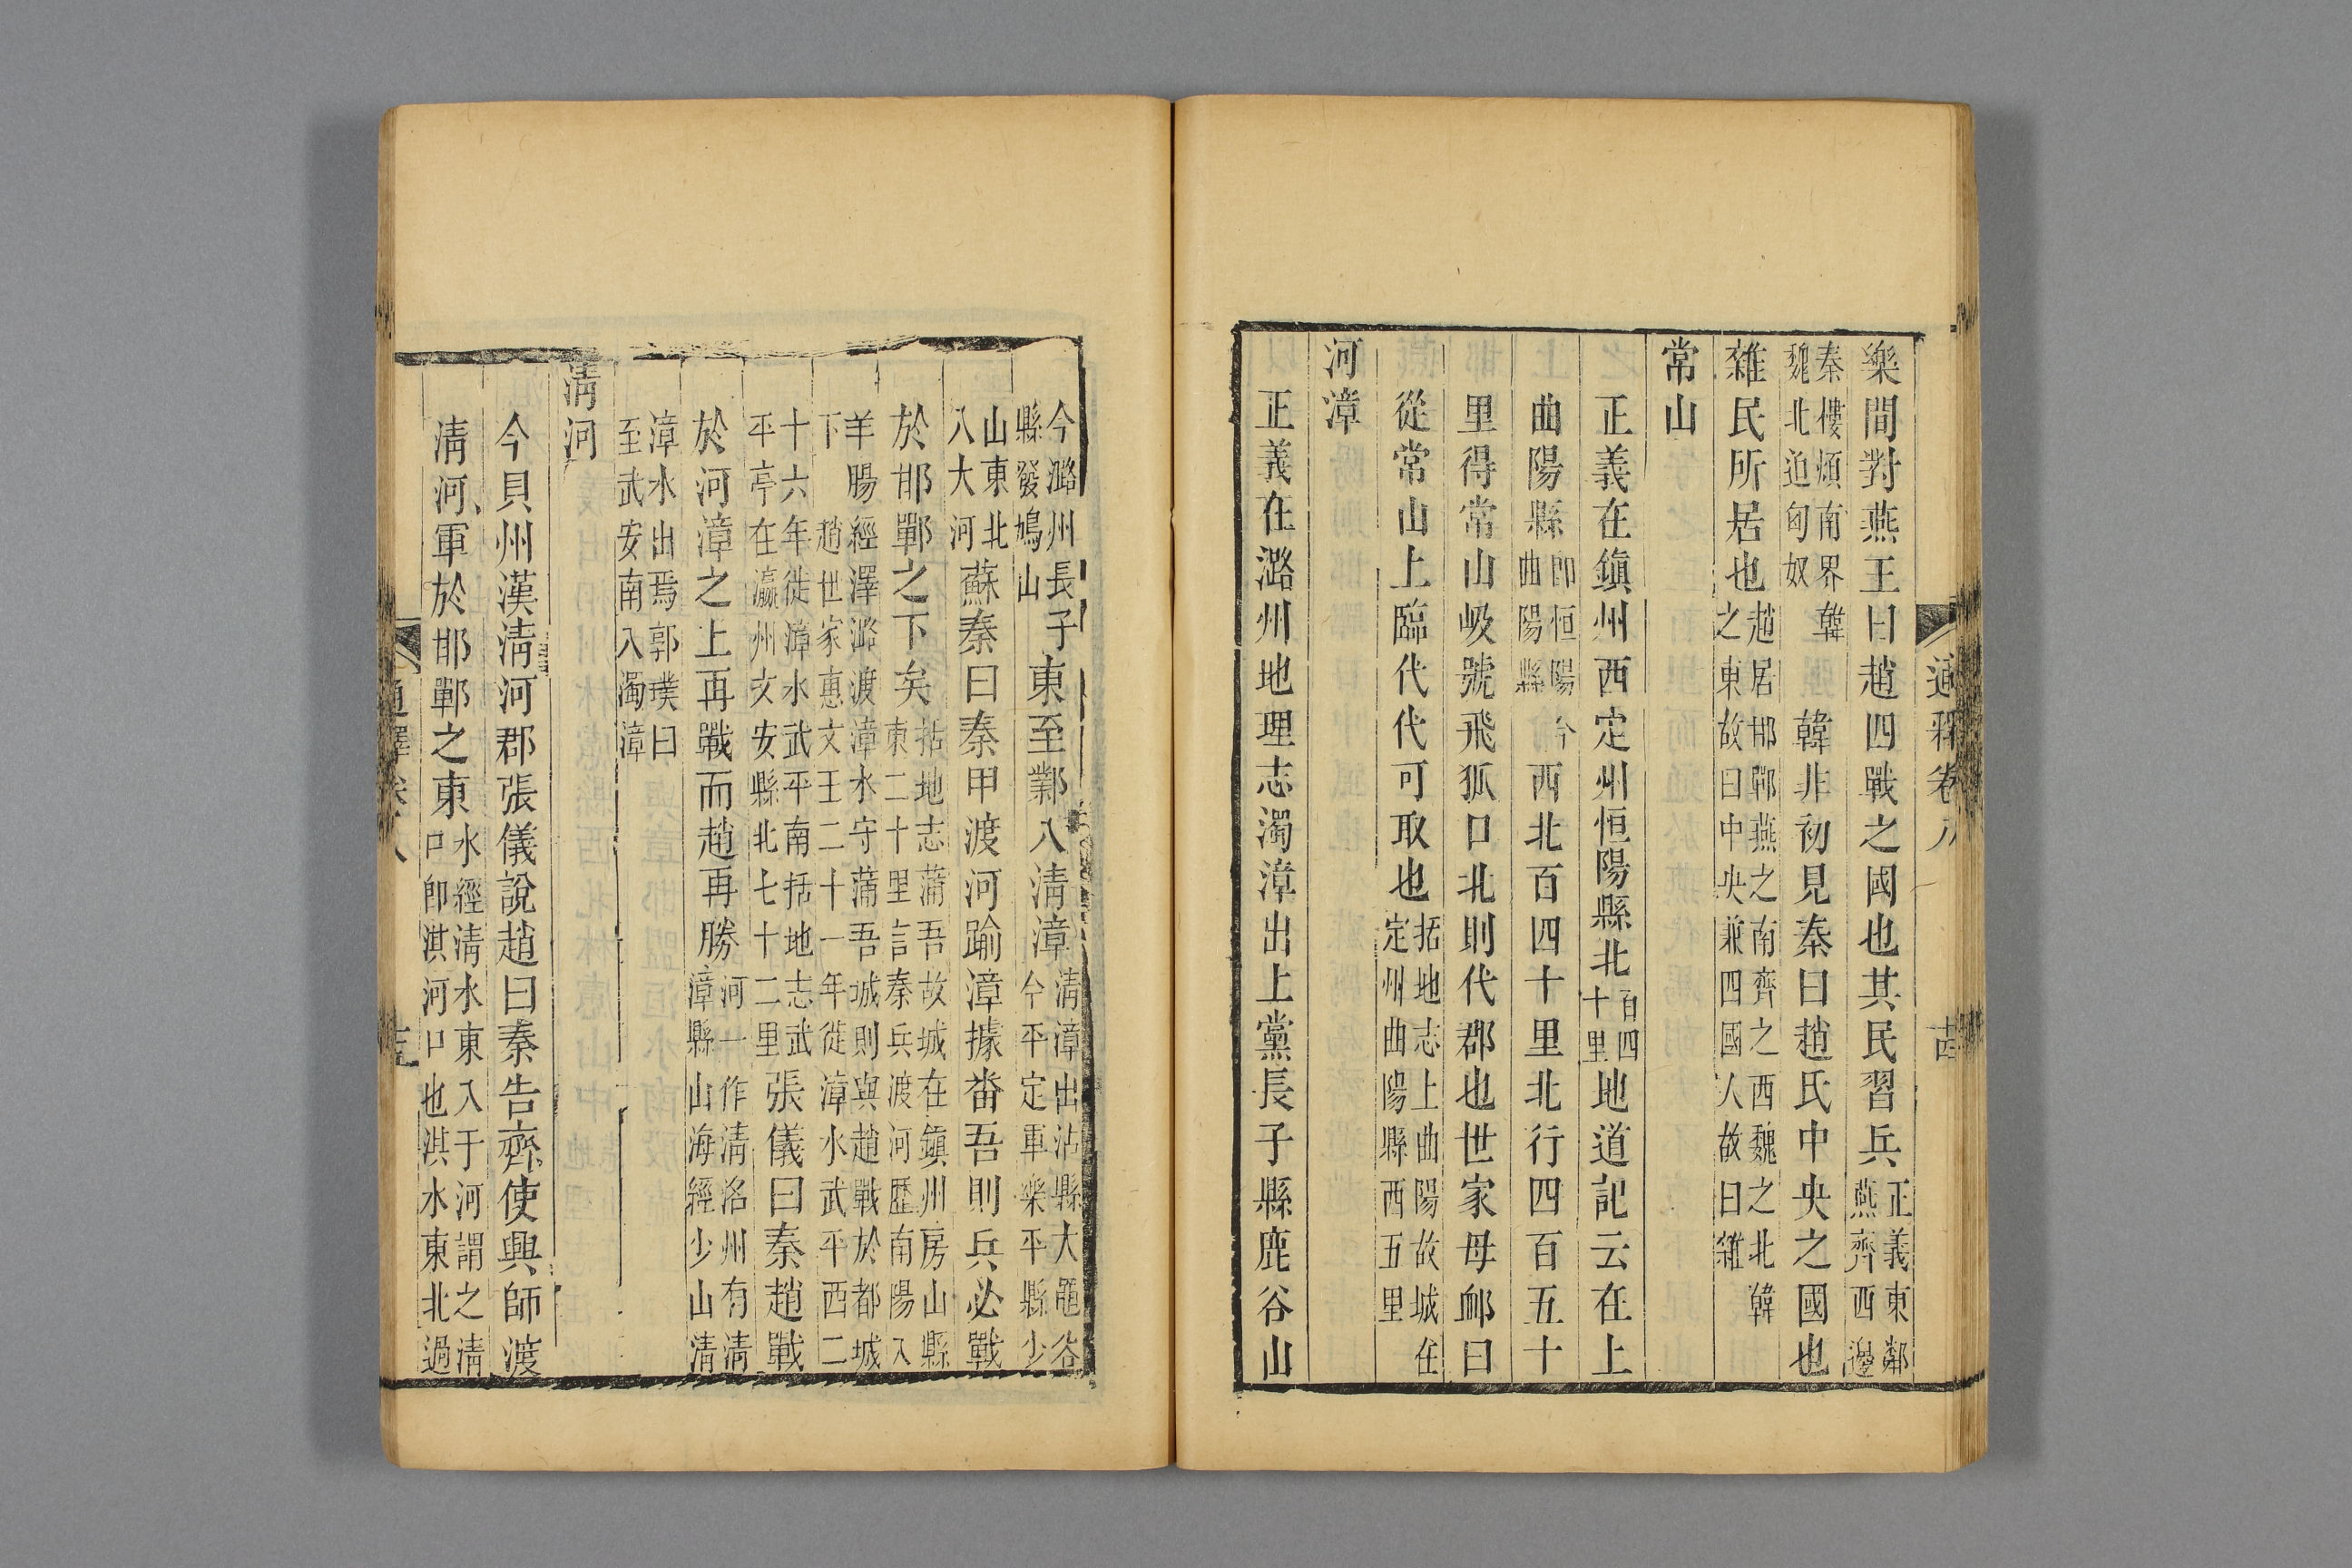 通釋卷八
樂間對燕王曰趙四戰之國也其民習兵正義東鄰燕齊西邊
秦樓煩南界韓魏北迫匈奴韓非初見秦曰趙氏中央之國也
雜民所居也趙居邯鄲燕之南齊之西魏之北韓之東故曰中央兼四國人故曰雜
常山
正義在鎮州西定州恒陽縣北百四十里地道記云在上
曲陽縣即恒陽今曲陽縣西北百四十里北行四百五十
里得常山岋號飛狐口北則代郡也世家毋卹曰
從常山上臨代代可取也括地志上曲陽故城在定州曲陽縣西五里
河漳
正義在潞州地理志濁漳出上黨長子縣鹿谷山
今潞州長子縣發鳩山東至鄴入清漳清漳出沾縣大黽谷今平定軍樂平縣少
山東北入大河蘇秦曰秦甲渡河踰漳據番吾則兵必戰
於邯鄲之下矣括地志蒲吾故城在鎮州房山縣東二十里言秦兵渡河歷南陽入
羊腸經澤潞渡漳水守蒲吾城則與趙戰於都城下趙世家惠文王二十一年徙漳水武平西二
十六年徙漳水武平南括地志武平亭在瀛州文安縣北七十二里張儀曰秦趙戰
於河漳之上再戰而趙再勝河一作清洺州有清漳縣山海經少山清
漳水出焉郭璞曰至武安南入濁漳
清河
今貝州漢清河郡張儀說趙曰秦告齊使興師渡
清河軍於邯鄲之東水經清水東入于河謂之清口即淇河口也淇水東北過